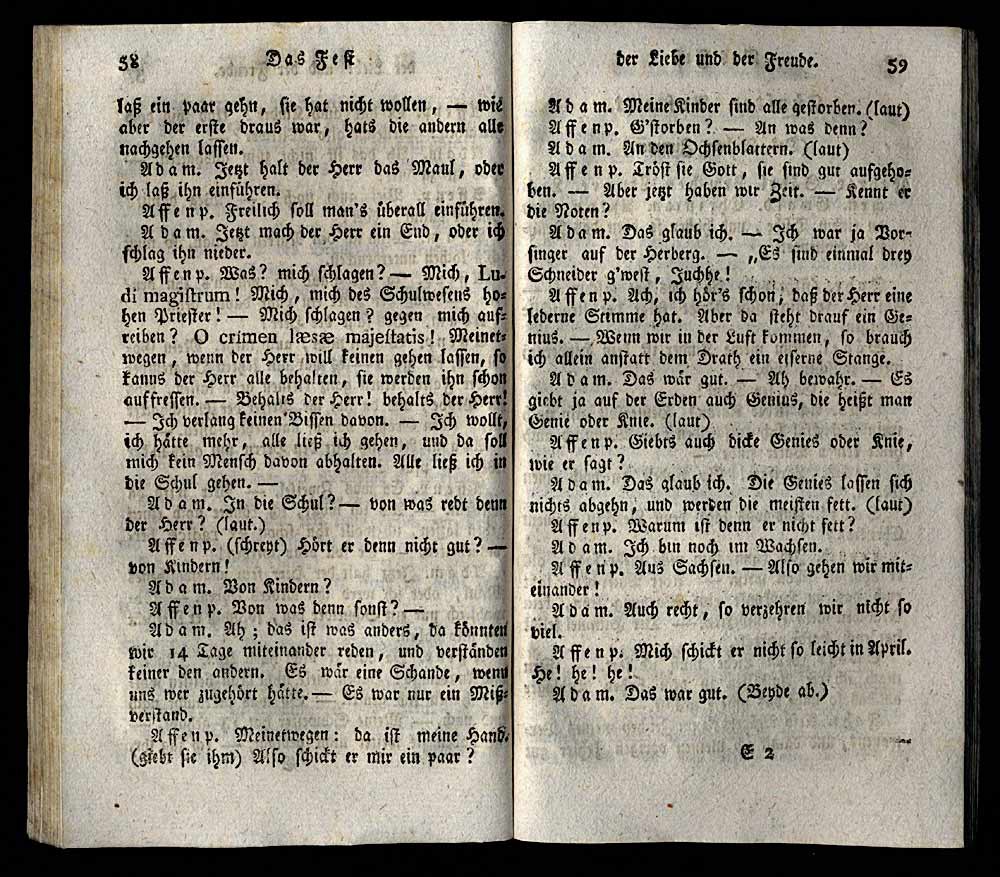 58 Das Fest
laß ein paar gehn, sie hat nicht wollen, — wie
aber der erste draus war, hats die andern alle
nachgehen lassen.
Adam. Jetzt halt der Herr das Maul, oder
ich laß ihn einführen.
Affenp. Freilich soll man's überall einführen.
Adam. Jetzt mach der Herr ein End, oder ich
schlag ihn nieder.
Affenp. Was? mich schlagen? — Mich, Lu-
di magistrum! Mich, mich des Schulwesens ho-
hen Priester! — Mich schlagen? gegen mich auf-
reiben? O crimen læsæ majestatis! Meinet-
wegen, wenn der Herr will keinen gehen lassen, so
kanns der Herr alle behalten, sie werden ihn schon
auffressen. — Behalts der Herr! behalts der Herr!
— Ich verlang keinen Bissen davon. — Ich wollt,
ich hätte mehr, alle ließ ich gehen, und da soll
mich kein Mensch davon abhalten. Alle ließ ich in
die Schul gehen. —
Adam. In die Schul? — von was redt denn
der Herr? (laut.)
Affenp. (schreyt) Hört er denn nicht gut? —
von Kindern!
Adam. Von Kindern?
Affenp. Von was denn sonst? —
Adam. Ah; das ist was anders, da könnten
wir 14 Tage miteinander reden, und verständen
keiner den andern. Es wär eine Schande, wenn
uns wer zugehört hätte. — Es war nur ein Miß-
verstand.
Affenp. Meinetwegen: da ist meine Hand.
(giebt sie ihm) Also schickt er mir ein paar?
der Liebe und der Freude. 59
Adam. Meine Kinder sind alle gestorben. (laut)
Affenp. G'storben? — An was denn?
Adam. An den Ochsenblattern. (laut)
Affenp. Tröst sie Gott, sie sind gut aufgeho-
ben. — Aber jetzt haben wir Zeit. — Kennt er
die Noten?
Adam. Das glaub ich. — Ich war ja Vor-
singer auf der Herberg. — „Es sind einmal drey
Schneider g'west, Juchhe!
Affenp. Ach, ich hör's schon, daß der Herr eine
lederne Stimme hat. Aber da steht drauf ein Ge-
nius. — Wenn wir in der Luft kommen, so brauch
ich allein anstatt dem Drath ein eiserne Stange.
Adam. Das wär gut. — Ah bewahr. — Es
giebt ja auf der Erden auch Genius, die heißt man
Genie oder Knie. (laut)
Affenp. Giebts auch dicke Genies oder Knie,
wie er sagt?
Adam. Das glaub ich. Die Genies lassen sich
nichts abgehn, und werden die meisten fett. (laut)
Affenp. Warum ist denn er nicht fett?
Adam. Ich bin noch im Wachsen.
Affenp. Aus Sachsen. — Also gehen wir mit-
einander!
Adam. Auch recht, so verzehren wir nicht so
viel.
Affenp. Mich schickt er nicht so leicht in April.
He! he! he!
Adam. Das war gut. (Beyde ab.)
E 2